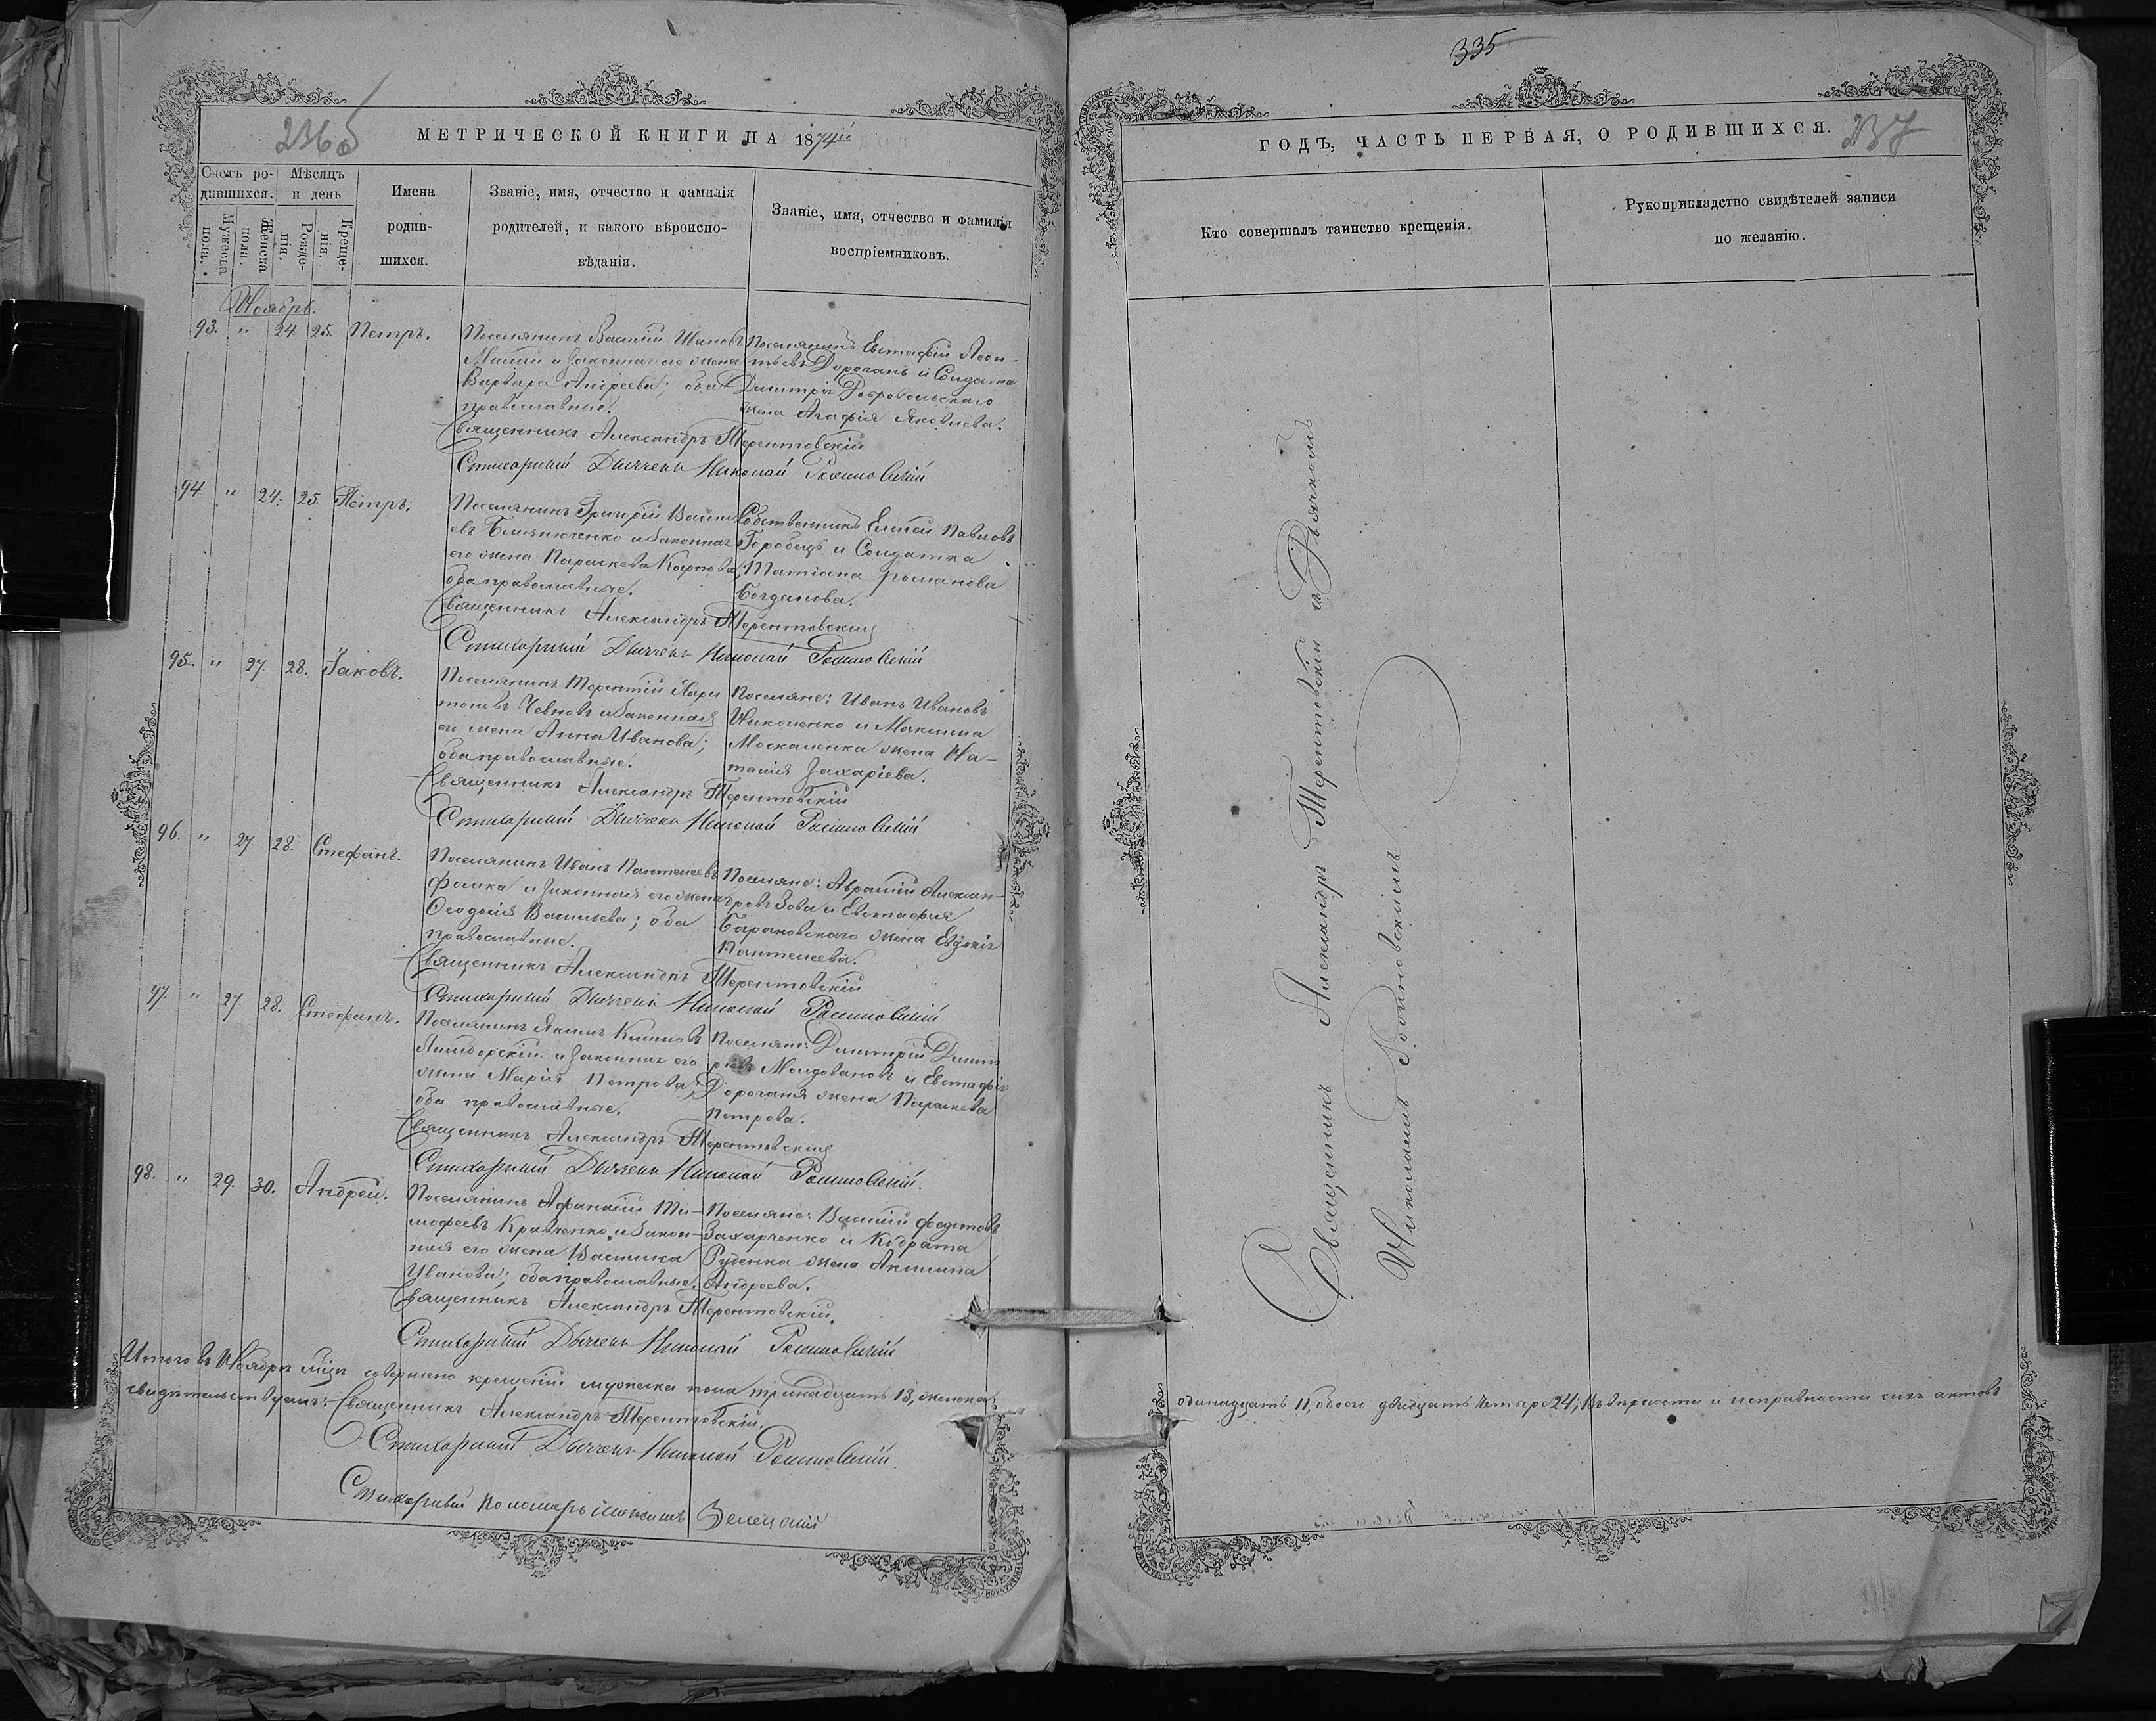 335
236об
МЕТРИЧЕСКОЙ КНИГИ НА 1874й
Счетъ ро-
дившихся.
Мѣсяцъ
и день
Мужеска
пола.
Женска
пола.
Рожде-
нія.
Креще-
нія.
Имена
родив-
шихся.
Званіе, имя, отчество и фамилія
родителей, и какого вѣроиспо-
вѣданія.
Званіе, имя, отчество и фамилія
воспріемниковъ.
Ноябрь.
93. " 24 25. Петръ.
Поселянинъ Василій Ивановъ
и законная его жена
Варвара Андреева; оба
православные.
Поселянинъ Евстафій Леон-
тьевъ Дороганъ и Солдата
Димитрія Добровольскаго
жена Агафія Яковлева.
Священникъ Александръ Терентовскій
Стихарный Дьячекъ Николай
94 " 24. 25. Петръ.
Поселянинъ Григорій Васильевъ
и законная
его жена Параскева Карпова;
оба православные.
Собственникъ Елисей Павловъ
Горобецъ и Солдатка
Татіана Романова
Богданова.
Священникъ Александръ Терентовскій
Стихарный Дьячекъ Николай
95. " 27. 28. Іаковъ.
Поселянинъ Терентій Хари
тоновъ и законная
его жена Анна Иванова;
оба православные.
Поселяне: Иванъ Ивановъ
Николенко и Максима
Москаленка жена На-
талія Захаріева.
Священникъ Александръ Терентовскій
Стихарный Дьячекъ Николай
96. " 27 28. Стефанъ.
Поселянинъ Иванъ Пантелеевъ
Фомка и законная его жена
Феодосія Васильева; оба
православные.
Поселяне: Аврамій Алексан-
дровъ Зова и Евстафія
Барановскаго жена Евдокія
Пантелеева.
Священникъ Александръ Терентовскій
Стихарный Дьячекъ Николай
97. " 27. 28. Стефанъ.
Поселянинъ Якимъ Климовъ
и законная его
жена Марія Петрова;
оба православные.
Поселяне: Димитрій Димит
ріевъ Молдовановъ и Евстафія
Дороганя жена Параскева
Петрова.
Священникъ Александръ Терентовскій
Стихарный Дьячекъ Николай
98. " 29. 30. Андрей.
Поселянинъ Афанасій Ти-
мофеевъ Кравченко и закон-
ная его жена Василиса
Иванова; оба православные.
Поселяне: Василій Федотовъ
Захарченко и Кодрата
Руденка жена Акилина
Андреева.
Священникъ Александръ Терентовскій.
Стихарный Дьячекъ Николай
Итого въ Ноябрѣ мцѣ совершено крещеній мужеска пола тринадцать 13, женска
свидѣтельствуемъ: Священникъ Александръ Терентовскій.
Стихарный Дьячекъ Николай
Стихарный Пономарь Зеленскій
237
ГОДЪ, ЧАСТЬ ПЕРВАЯ, О РОДИВШИХСЯ.
Кто совершалъ таинство крещенія.
Рукоприкладство свидѣтелей записи
по желанію.
Священникъ Александръ Терентовскій съ Дьячкомъ
Николаемъ
одинадцать 11, обоего двадцать четыре 24; Въ вѣрности и исправности сихъ актовъ